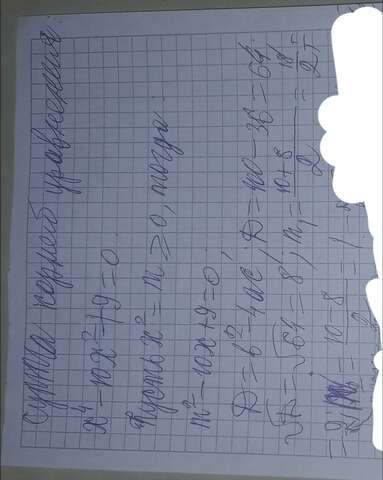 Сумма корней уравнения
x⁴ - 10x² + 9 = 0.
Пусть x² = m ≥ 0, тогда
m² - 10x + 9 = 0;
D = b² - 4ac; D = 100 - 36 = 64;
√D = √64 = 8; m₁ = (10 + 8)/2 = 18/2 =
= 9; = (10 - 8)/2 = 1